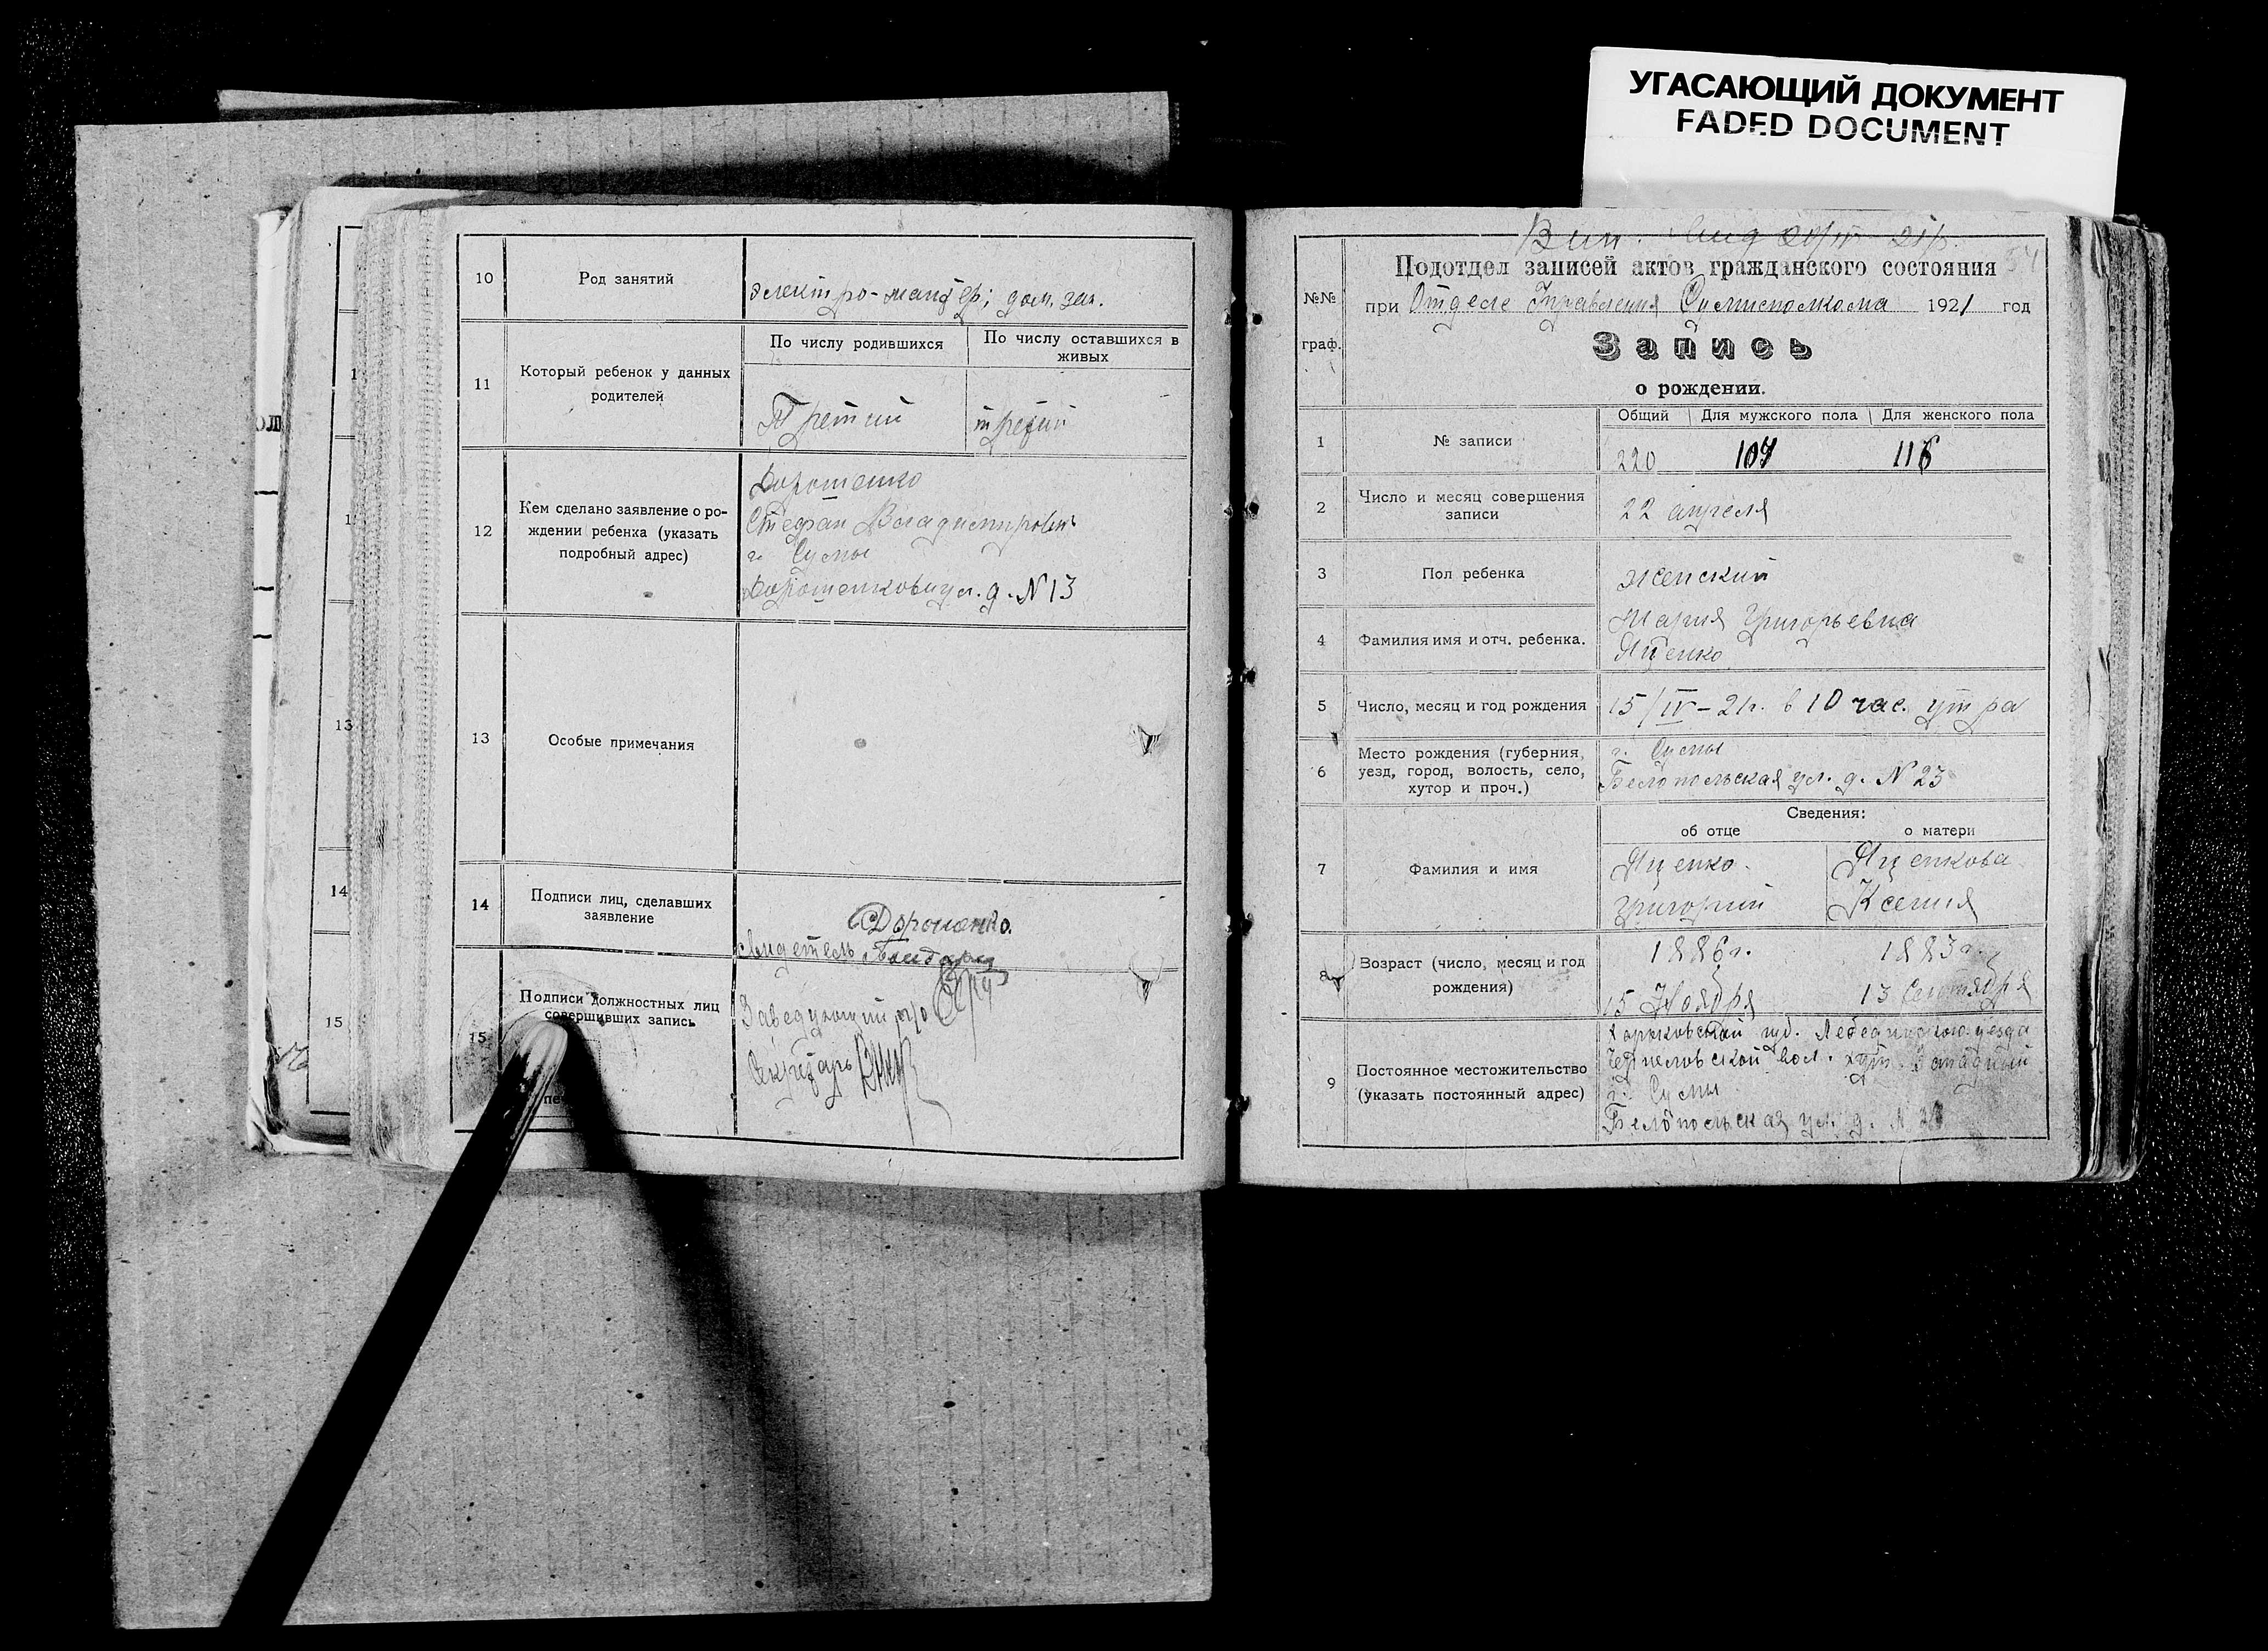 УГАСАЮЩИЙ ДОКУМЕНТ
FADED DOCUMENT
10
Род занятий
электро-мантер; дом. зан.
11
Который ребенок у данных
родителей
По числу родившихся
По числу оставшихся в
живых
Третий
третий
12
Кем сделано заявление о ро-
ждении ребенка (указать
подробный адрес)
Дорошенко
Стефан Владимирович
г. Сумы
Дорошенковск ул. д. N 13
13
Особые примечания
14
Подписи лиц, сделавших
заявление
Дорошенко.
свидетель
15
Подписи должностных лиц
совершивших запись
Заведующий
Секретарь
1
13
14
15
Подотдел записей актов гражданского состояния
при Отделе Управления Сумисполкома 1921 год
№№
граф.
Запись
о рождении.
1
№ записи
Общий
Для мужского пола
Для женского пола
220
104
116
2
Число и месяц совершения
записи
22 апреля
3
Пол ребенка
женский
4
Фамилия имя и отч. ребенка.
Мария Григорьевна
Яценко
5
Число, месяц и год рождения
15/IV-21г. в 10 час. утра
6
Место рождения (губерния,
уезд, город, волость, село,
хутор и проч.)
г. Сумы
Белопольская ул. д. N 23
Сведения:
об отце
о матери
7
Фамилия и имя
Яценко
Григорий
Яценкова
Ксения
8
Возраст (число, месяц и год
рождения)
1886г.
15 Ноября
1883г.
13 Сентября
9
Постоянное местожительство
(указать постоянный адрес)
Харьковской губ. Лебединского уезда
вол. хут. Западный
г. Сумы
Белопольская ул. д. N